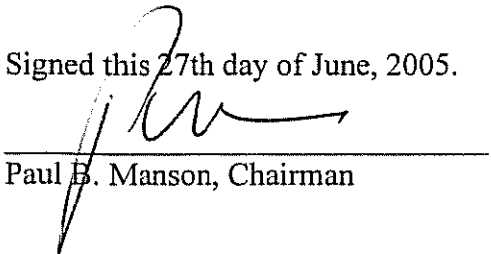 Signed this 27th day of June, 2005.
Paul B. Manson, Chairman